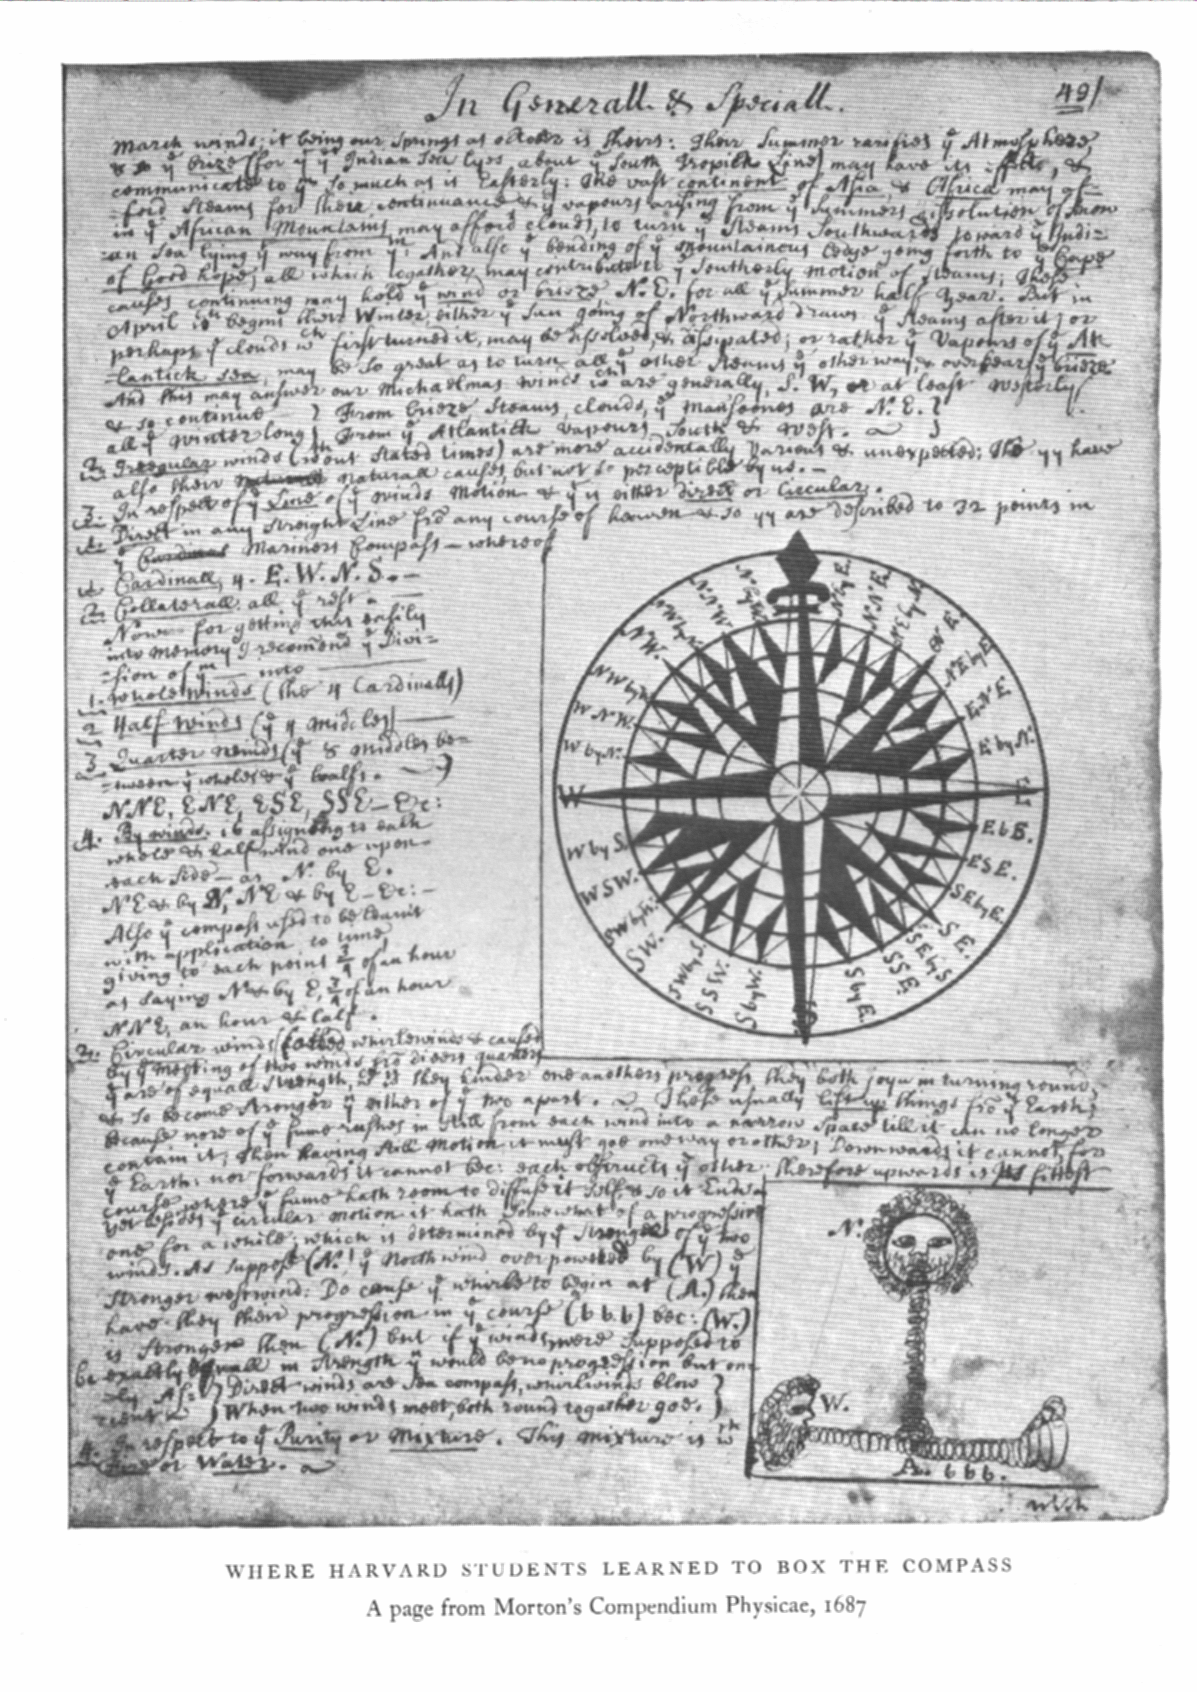 In Generall & Speciall.
49/
march winds: it being our springs as october is theirs: Their Summer rarifies yᵉ Atmosphere,
yᵉ Indian Sea lyes about yᵉ South Tropick Line) may have its effects, &
communicate to yᵐ so much as is Easterly: The vast continent of Asia, & Africa may af=
=ford steams for there continuance & yᵉ vapours arising from yᵉ Summers dissolution of snow
in yᵉ African Mountains may afford clouds, to turn yᵉ steams Southwards toward yᵉ Indi=
=an Sea lying yᵉ way from yᵐ: And also yᵉ bending of yᵉ mountainous ledge going forth to yᵉ Cape
of Good hope, all which together may contribute to yᵉ Southerly motion of steams; These
causes continuing may hold yᵉ wind or brieze N.E. for all yᵉ Summer half year. But in
April begins there Winter, either yᵉ Sun going of Northward draws yᵉ steams after it; or
perhaps yᵉ clouds wᶜʰ first turned it, may be dissolved, & dissipated; or rather yᵉ Vapours of yᵉ At=
=lantick sea, may be so great as to turn all yᵉ other steams yᵉ other way, & overbear yᵉ brieze
And this may answer our Michaelmas winds wᶜʰ are generally, S. W, or at least westerly
& so continue } From brieze, steams, clouds, yᵉ Mansoones are N.E. }
all yᵉ winter long } From yᵉ Atlantick vapours South & West. }
2. Irregular winds (wᵗʰout stated times) are more accidentally various & unexpected; Tho' yy have
also their naturall causes, but not so perceptible by us. —
3. In respect of yᵉ Line of yᵉ winds Motion & yᵗ is either direct or Circular.
1. Direct in any streight Line frō any course of heaven & so yy are described to 32 points in
yᵉ Mariners Compass — whereof
1. Cardinall, 4. E. W. N. S. —
2. Collaterall, all yᵉ rest. —
Now for getting this easily
into memory I recomend yᵉ Divi=
=sion of yᵐ — into
1. whole winds (the 4 Cardinalls)
2 Half winds (yᵉ 4 middles)
3 Quarter winds (yᵉ 8 middles be=
=tween yᵉ wholes & yᵉ halfs.
NNE, ENE, ESE, SSE — &c:
4. By winds. 16 assigning to each
whole & half wind one upon
each side — as N. by E.
NE & by N, NE & by E — &c: —
Also yᵉ compass used to be learnt
with application to time
giving to each point 3/4 of an hour
as saying N & by E, 3/4 of an hour
NNE, an hour & half.
2. Circular winds (called whirlewinds & caused
by yᵉ meeting of two winds frō divers quarters
yᵗ are of equall strength, they hinder one anothers progress, they both joyn in turning round,
& so become stronger yⁿ either of yᵉ two apart. These usually lift up things frō yᵉ Earth,
because more of yᵉ fume rushes in still from each wind into a narrow space till it can no longer
contain it; then having still motion it must goe one way or other; Downwards it cannot, for
yᵉ Earth: nor forwards it cannot bec: each obstructs yᵉ other therefore upwards is its fittest
course, where yᵉ fume hath room to diffuse it self, & so it Ends
yet besides yᵉ circular motion it hath somewhat of a progressive
one for a while; which is determined by yᵉ strength of yᵉ two
winds. As suppose (N.) yᵉ North wind overpowered by (W) yᵉ
stronger westwind: Do cause yᵉ whirle to begin at (A.) then
have they their progression in yᵉ course (b b b) bec: (W.)
is stronger then (N.) but if yᵉ winds were supposed to
be exactly equall in strength yʳ would be no progression but one=
=ly
} Direct winds are sea compass, whirlwinds blow }
} When two winds meet, both round togather goe. }
4. In respect to yᵉ Purity or Mixture. This mixture is wᵗʰ
Fire or Water.
N by E.
N.N.E.
NE by N.
N E.
NE by E.
E.N E
E by N.
E
E b S.
ESE.
SE by E.
S E.
SE by S
SSE.
S by E.
S
S by W.
SSW.
SW by S.
SW.
SW by W.
WSW.
W by S.
W
W by N.
W N W.
NW by W.
NW.
NW by N.
NNW.
N by W.
N.
W.
A. b b b.
WHERE HARVARD STUDENTS LEARNED TO BOX THE COMPASS
A page from Morton's Compendium Physicae, 1687